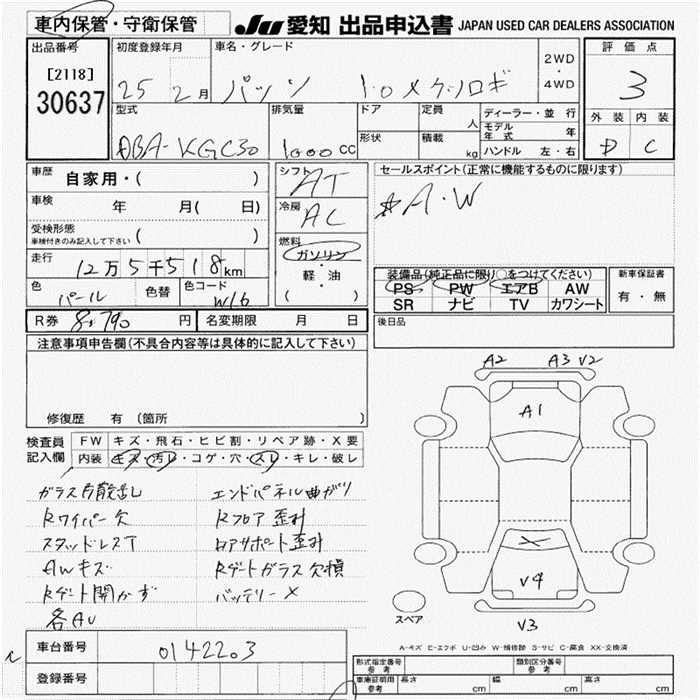 車内保管・守衛保管
JU 愛知 出品申込書 JAPAN USED CAR DEALERS ASSOCIATION
出品番号
[2118]
30637
初度登録年月
25 2月
車名・グレード
パッソ 1.0 X
2WD
・
4WD
評価点
3
外装 内装
D C
型式
DBA-KGC30
排気量
1000 CC
ドア
形状
定員
人
積載
kg
ディーラー・並行
モデル年式 年
ハンドル 左・右
車歴 自家用・( )
車検 年 月( 日)
受検形態
車検付きのみ記入して下さい ( )
走行
12万5千518km
色
パール
色替
色コード
W16
シフト
AT
冷房
AC
燃料
ガソリン
・
軽・油
( )
セールスポイント(正常に機能するものに限ります)
A・W
装備品(純正品に限り○をつけてください)
PS PW エアB AW
SR ナビ TV カワシート
新車保証書
有・無
R券 8,790 円
名変期限 月 日
後日品
注意事項申告欄(不具合内容等は具体的に記入して下さい)
修復歴 有(箇所 )
検査員記入欄
FW キズ・飛石・ヒビ割・リペア跡・X要
内装 キズ・汚レ・コゲ・穴・スレ・キレ・破レ
Rワイパー欠
スタッドレスT
AWキズ
Rゲート開かず
各AU
エンドパネル曲がり
Rフロア歪み
Rゲートガラス欠損
バッテリー×
A2 A3 V2
A1
X
V4
V3
スペア
A-キズ E-エクボ U-凹み W-補修跡 S-サビ C-腐食 XX-交換済
車台番号 0142203
登録番号
形式指定番号
参考
類別区分番号
参考
車庫証明用
参考
長さ cm
幅 cm
高さ cm